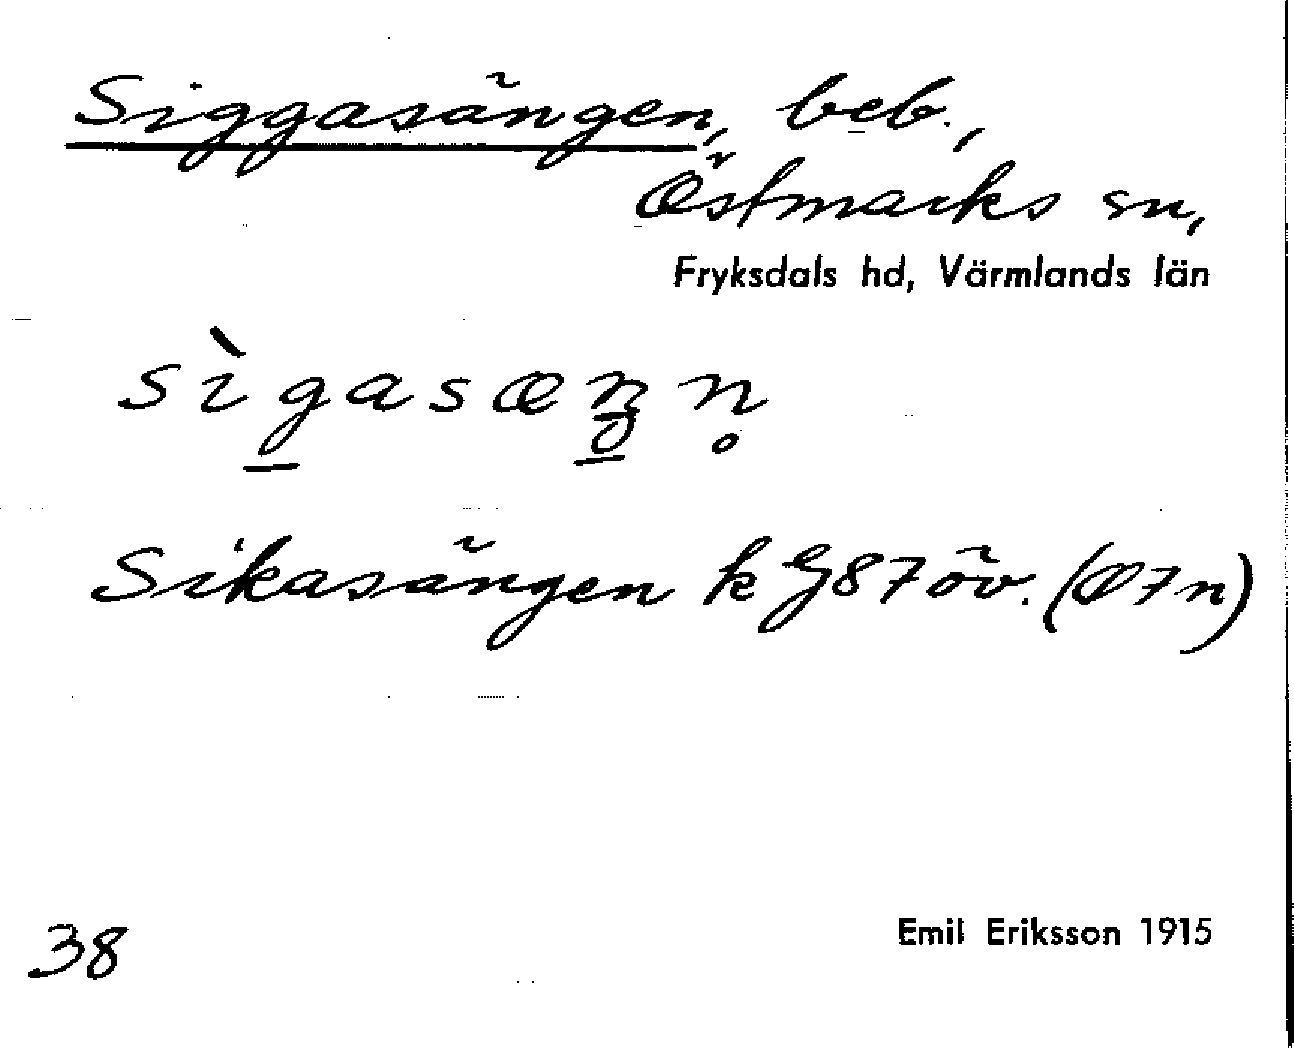 Siggasängen, beb.,
Östmarks sn,
Fryksdals hd, Värmlands län
sìgasæŋn̥
Sikasängen k G87 öv. (Ø7n)
38
Emil Eriksson 1915